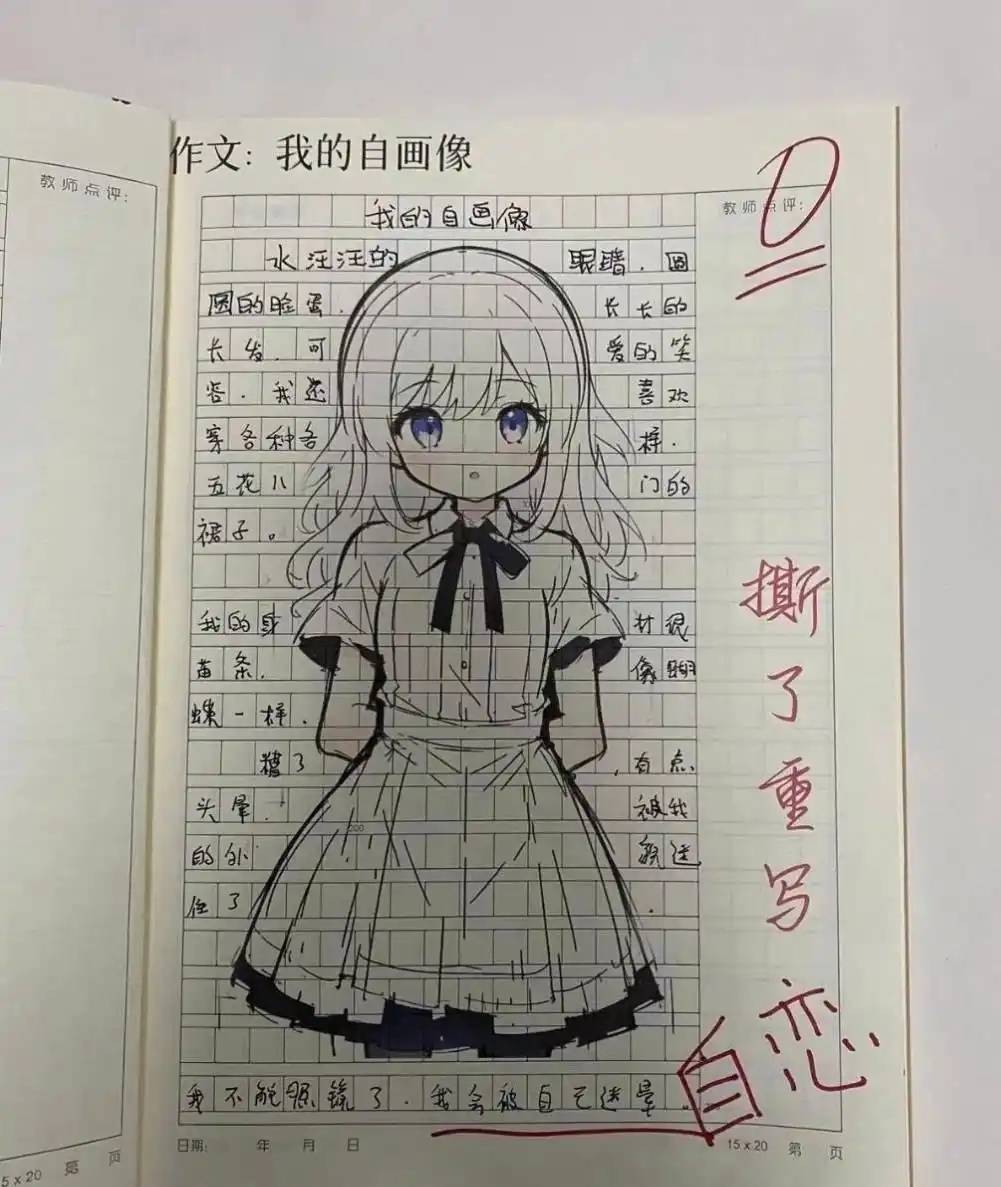 教师点评:
作文: 我的自画像
我的自画像
水汪汪的眼睛.圆
圆的脸蛋.长长的
长发.可爱的笑
容.我还喜欢
穿各种各样.
五花八门的
裙子。
我的身材很
苗条.像蝴
蝶一样.
糟了,有点
头晕.被我
的外貌迷
住了.
我不能照镜了.我会被自己迷晕.
教师点评:
D
撕了重写
自恋
日期: 年 月 日
15 x 20 第 页
5 x 20 第 页